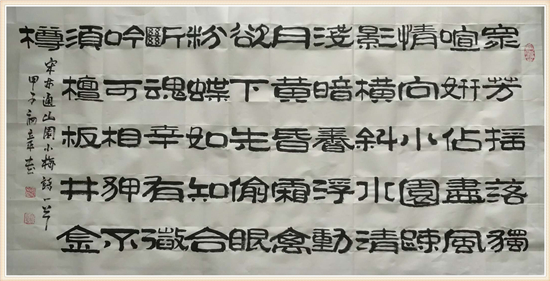 衆芳搖落獨
喧妍佔盡風
情向小園踈
影橫斜水清
淺暗香浮動
月黃昏霜禽
欲下先偷眠
粉蝶如知合
斷魂幸有微
吟可相狎不
須檀板共金
樽
宋林逋山園小梅詩一首
甲子